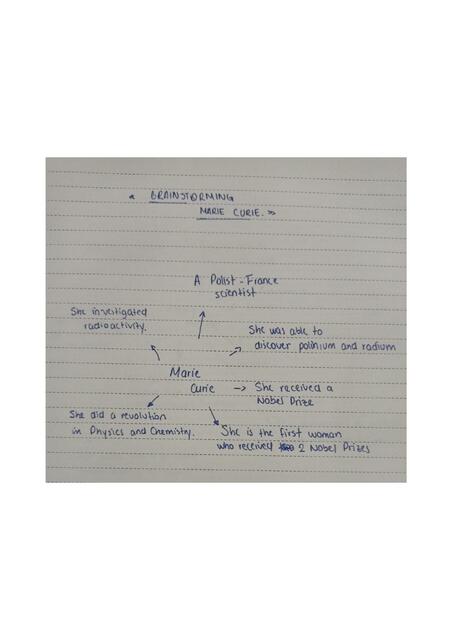 « BRAINSTORMING
MARIE CURIE. »
A Polist - France
scientist
She investigated
radioactivity.
She was able to
discover polinium and radium
Marie
Curie
She received a
Nobel Prize
She did a revolution
in Physics and Chemistry.
She is the first woman
who received 2 Nobel Prizes